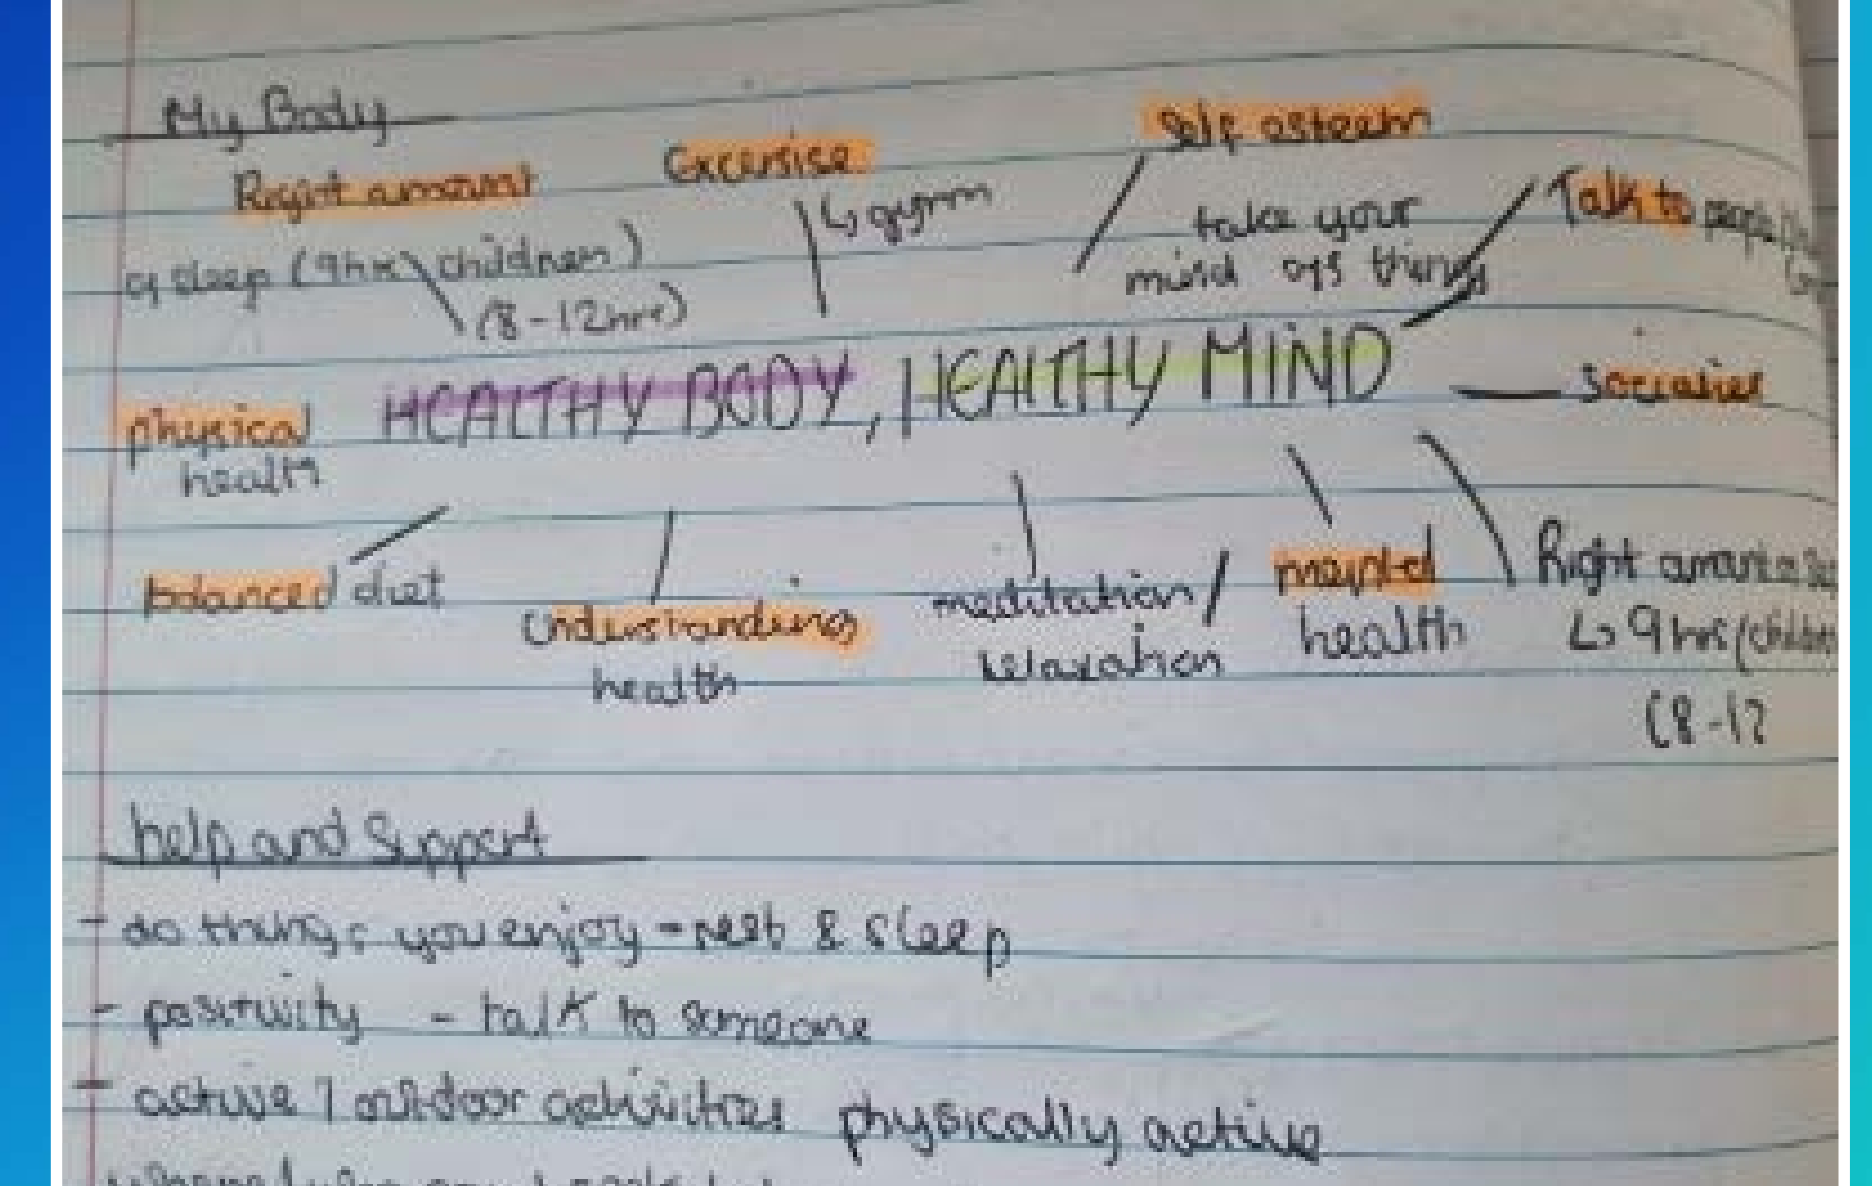 My Body
Right amount
of sleep (9hrs children)
(8-12hrs)
Excersise
↳ gym
Self esteem
take your
mind off things
Talk to people
HEALTHY BODY, HEALTHY MIND
Socialise
physical
health
balanced diet
Understanding
health
meditation/
relaxation
health
Right amount
↳ 9hrs (children
(8-12
help and Support
- do things you enjoy - rest & sleep
- positivity - talk to someone
- active / outdoor activities physically active